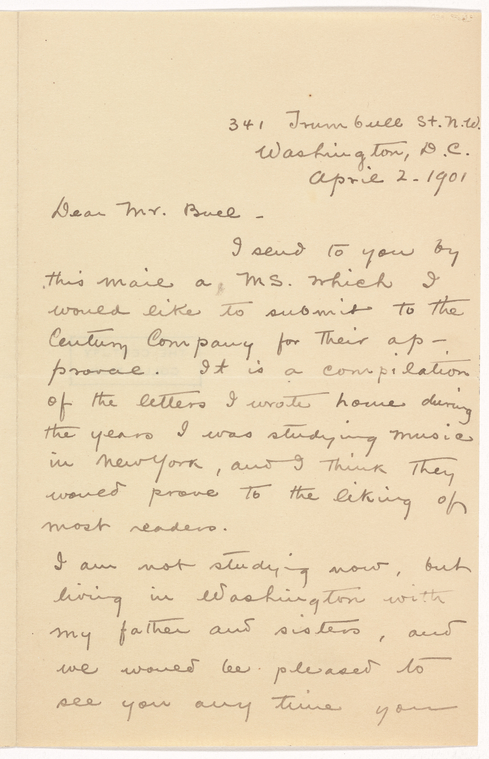 341 Trumbull St. N.W.
Washington, D.C.
April 2 - 1901
Dear Mr. Buel -
I send to you by
this mail a MS. which I
would like to submit to the
Century Company for their ap-
proval. It is a compilation
of the letters I wrote home during
the years I was studying music
in New York, and I think they
would prove to the liking of
most readers.
I am not studying now, but
living in Washington with
my father and sisters, and
we would be pleased to
see you any time you